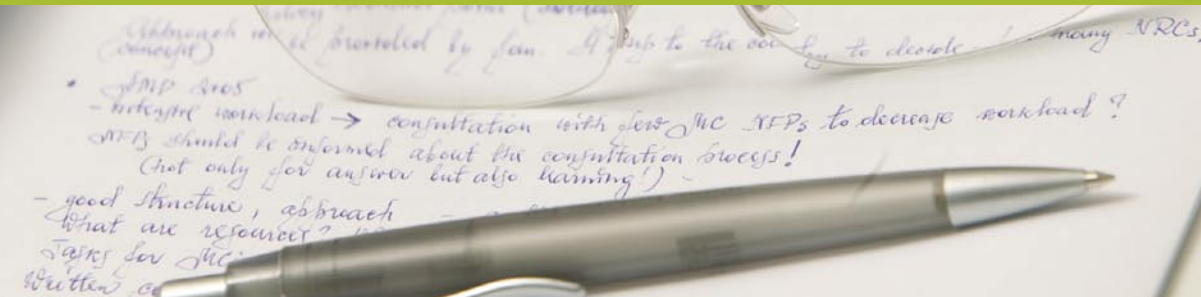 Approach will be provided by Jan. It is up to the country to decide many NRCs,
(concept)
• SMP 2005
- intensive workload → consultation with few MC NFPs to decrease workload ?
NFPs should be informed about the consultation process!
(not only for answer but also learning!) -
- good structure, approach -
What are resources?
Tasks for MC:
Written